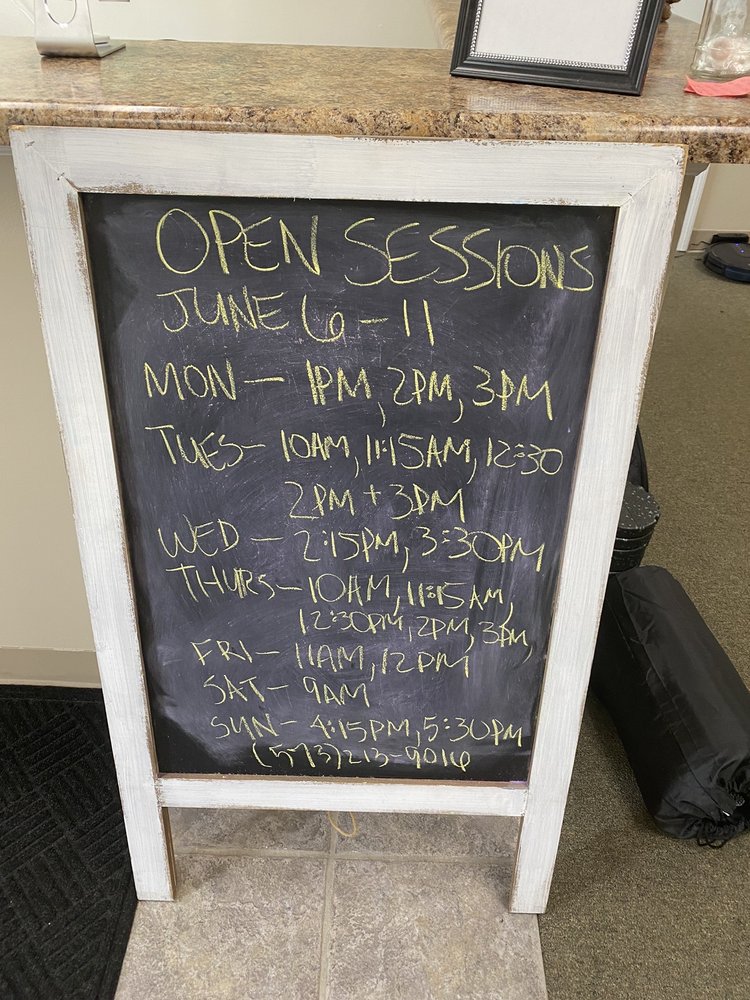 OPEN SESSIONS
JUNE 6-11
MON - 1PM, 2PM, 3PM
TUES- 10AM, 11:15AM, 12:30
2PM + 3PM
WED - 2:15PM, 3:30PM
THURS- 10AM, 11:15AM,
12:30PM, 2PM, 3PM,
FRI- 11AM, 12PM
SAT- 9AM
SUN- 4:15PM, 5:30PM
(573)213-9016